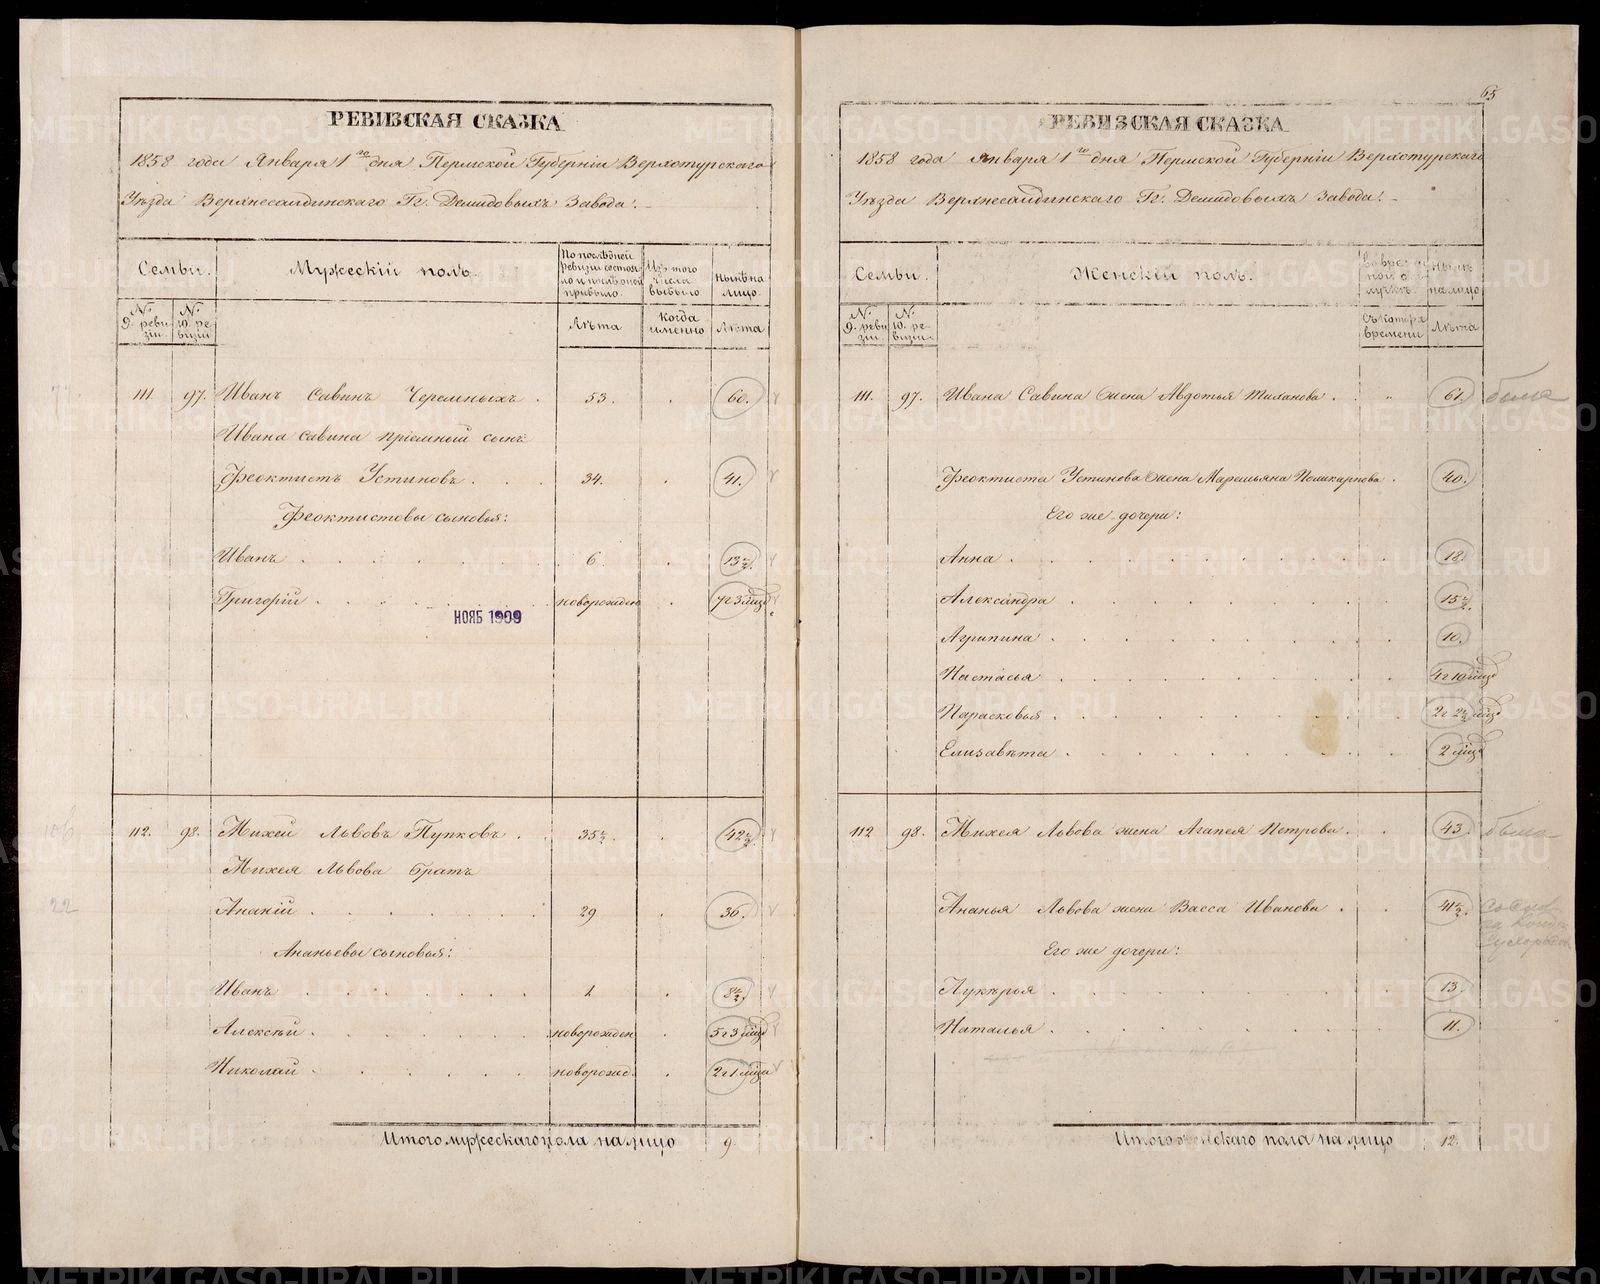 РЕВИЗСКАЯ СКАЗКА
1858 года Января 1го дня Пермской Губерніи Верхотурскаго
Уѣзда Верхнесалдинскаго Гг. Демидовыхъ Завода.
Семьи. Мужескій полъ. По послѣдней ревизіи состояло и послѣ оной прибыло. Изъ того числа выбыло. Нынѣ на лицо.
№ 9. ревизіи. № 10. ревизіи. Лѣта Когда именно Лѣта
111. 97. Иванъ Савинъ Черемныхъ . 53. . 60.
Ивана Савина пріемный сынъ
Феоктистъ Устиновъ . . . 34. . 41.
Феоктистовы сыновья:
Иванъ . . . . . . . 6. . 13½.
Григорій . . . . . . новорожден . 7 г 3 мѣс
НОЯБ 1909
112. 98. Михей Львовъ Пупковъ . . 35½. . 42½.
Михея Львова братъ
Ананій . . . . . . 29 . 36.
Ананьевы сыновья:
Иванъ . . . . . . 1. . 8½.
Алексѣй . . . . . . новорожден . 5 г 3 мѣс
Николай . . . . . . новорожд. . 2 г 1 мѣс
Итого мужескаго пола на лицо 9.
65
РЕВИЗСКАЯ СКАЗКА
1858 года Января 1го дня Пермской Губерніи Верхотурскаго
Уѣзда Верхнесалдинскаго Гг. Демидовыхъ Завода.
Семьи. Женскій полъ. Во временной отлучкѣ. Нынѣ на лицо
№ 9. ревизіи. № 10. ревизіи. Съ котора времени Лѣта
111. 97. Ивана Савина жена Авдотья . . 61.
Феоктиста Устинова жена Маремьяна Поликарпова . 40.
Его же дочери:
Анна . . . . . . . 18.
Александра . . . . . . 15½.
Агрипина . . . . . . 10.
Настасья . . . . . . 4 г 10 мѣс
Парасковья . . . . . . 2 г 2½ мѣс
Елизавѣта . . . . . . 2 мѣс
112 98. Михея Львова жена Агапея Петрова . . 43.
Ананья Львова жена Васса Иванова . . 41½.
Его же дочери:
Лукѣрья . . . . . . 13.
Наталья . . . . . . 11.
Итого женскаго пола на лицо 12.
METRIKI.GASO-URAL.RU